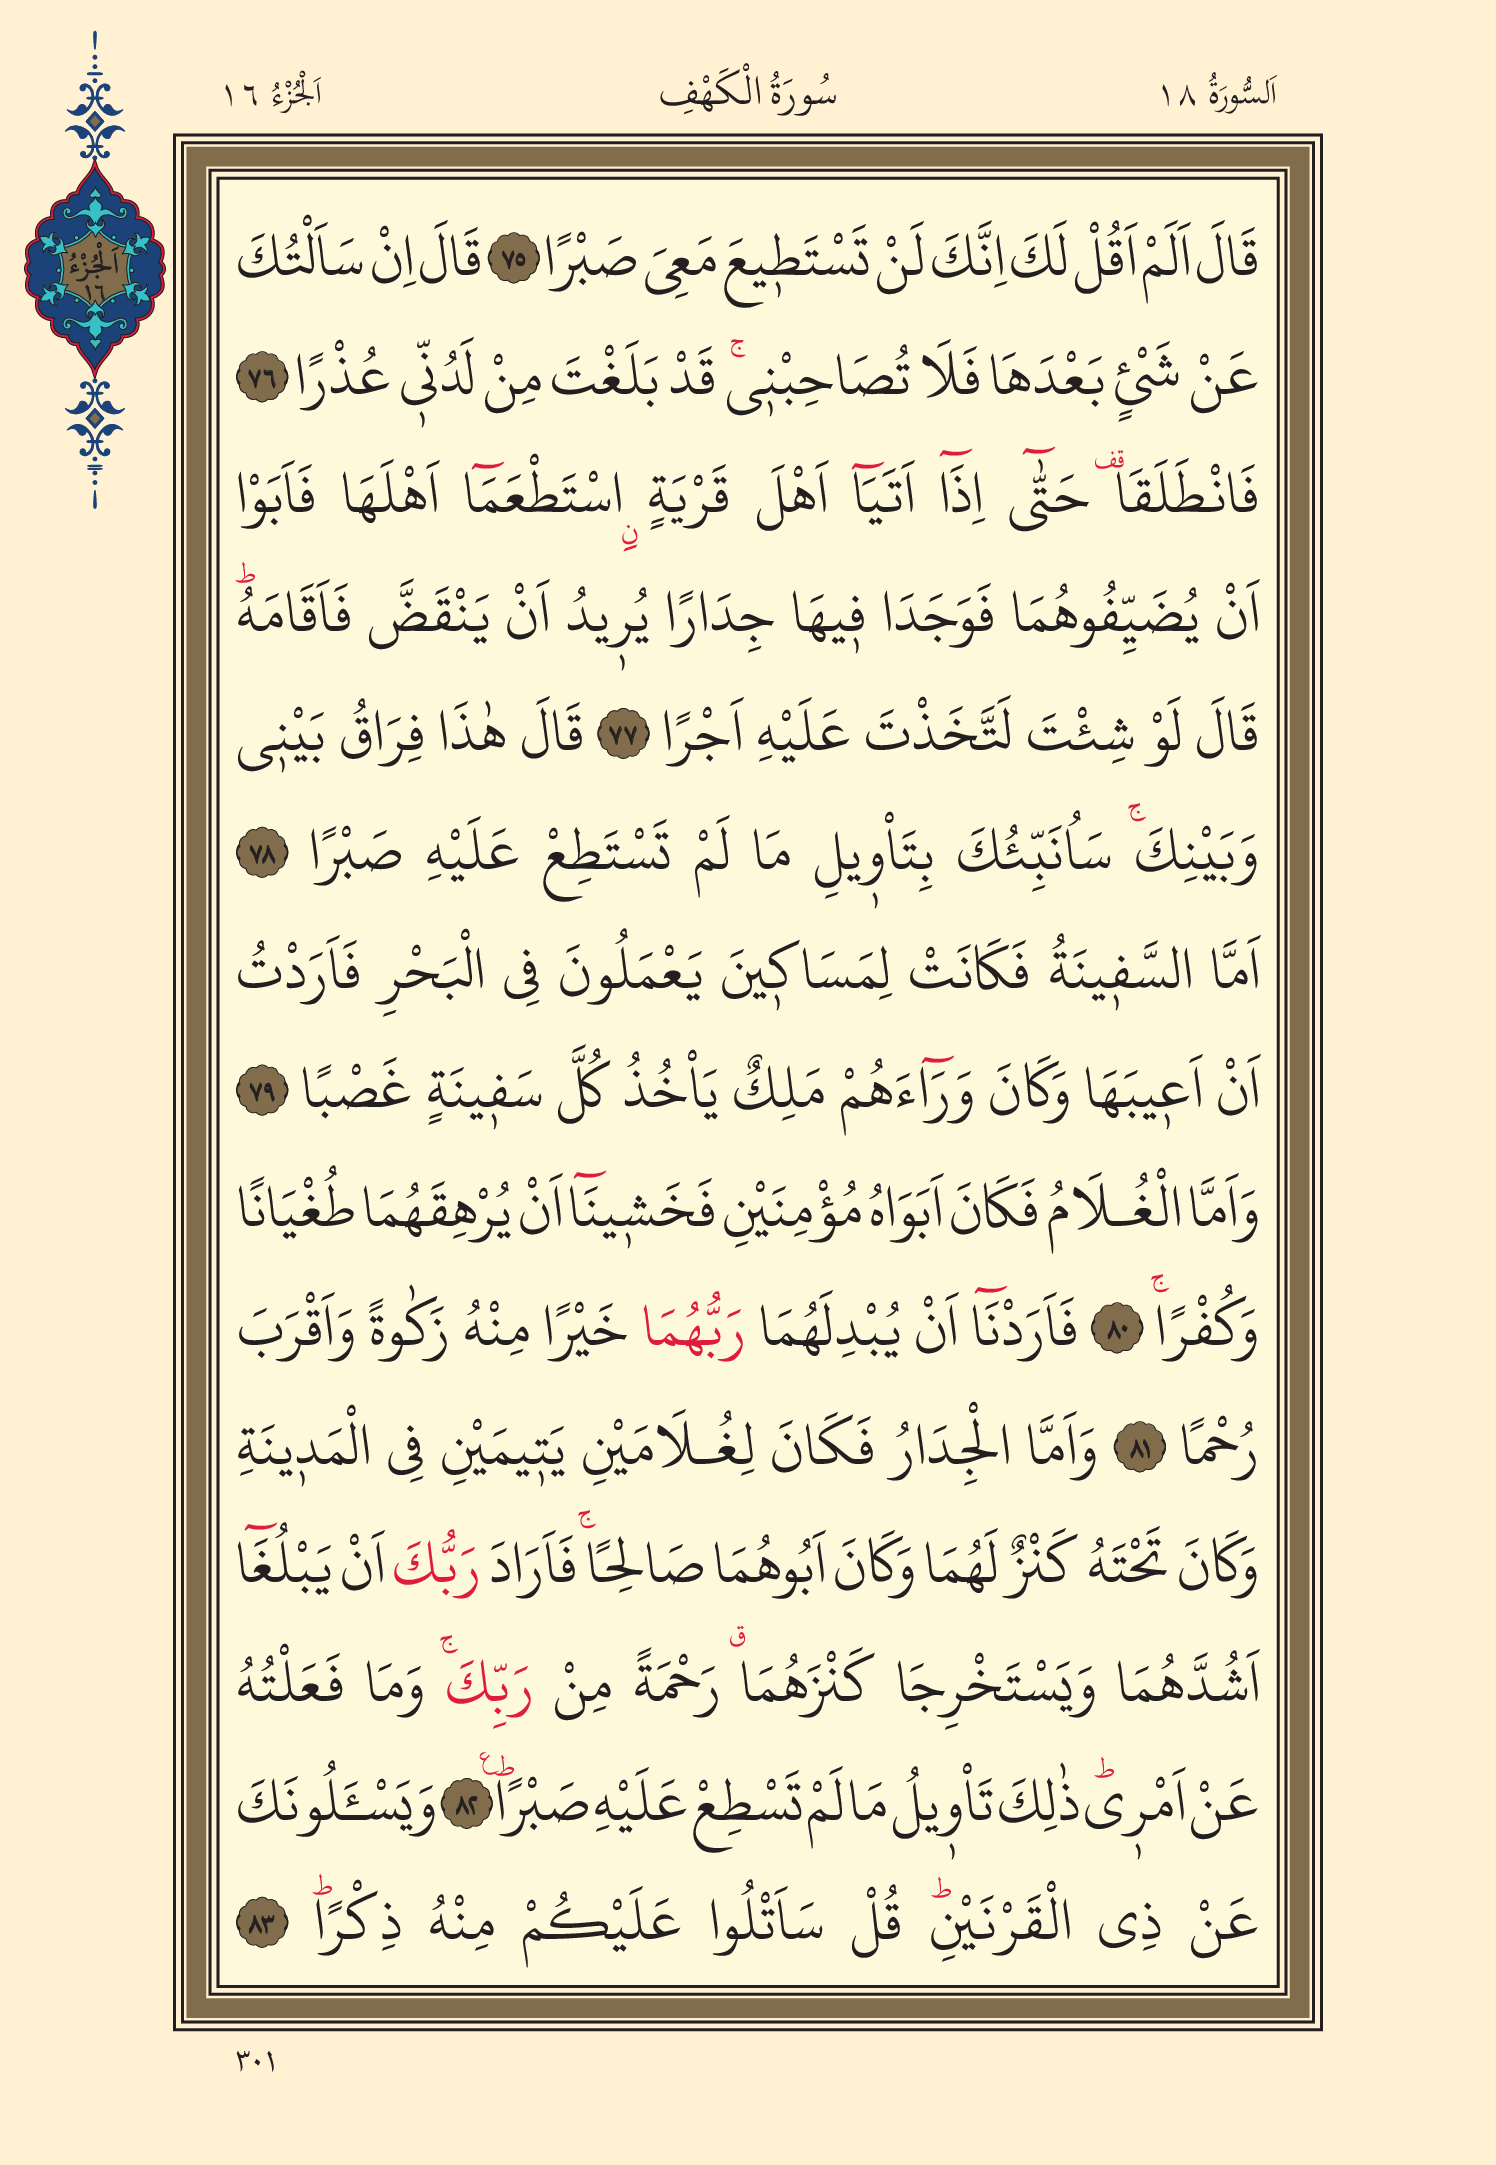 اَلسُّورَةُ ١٨
سُورَةُ الْكَهْفِ
اَلْجُزْءُ ١٦
اَلْجُزْءُ
١٦
قَالَ اَلَمْ اَقُلْ لَكَ اِنَّكَ لَنْ تَسْتَطٖيعَ مَعِىَ صَبْرًا ٧٥ قَالَ اِنْ سَاَلْتُكَ
عَنْ شَیْئٍ بَعْدَهَا فَلَا تُصَاحِبْنٖىۚ قَدْ بَلَغْتَ مِنْ لَدُنّٖى عُذْرًا ٧٦
فَانْطَلَقَاࣞ حَتّٰٓى اِذَٓا اَتَيَٓا اَهْلَ قَرْيَةٍ ࣙنِ اسْتَطْعَمَٓا اَهْلَهَا فَاَبَوْا
اَنْ يُضَيِّفُوهُمَا فَوَجَدَا فٖيهَا جِدَارًا يُرٖيدُ اَنْ يَنْقَضَّ فَاَقَامَهُؕ
قَالَ لَوْ شِئْتَ لَتَّخَذْتَ عَلَيْهِ اَجْرًا ٧٧ قَالَ هٰذَا فِرَاقُ بَيْنٖى
وَبَيْنِكَۚ سَاُنَبِّئُكَ بِتَاْوٖيلِ مَا لَمْ تَسْتَطِعْ عَلَيْهِ صَبْرًا ٧٨
اَمَّا السَّفٖينَةُ فَكَانَتْ لِمَسَاكٖينَ يَعْمَلُونَ فِى الْبَحْرِ فَاَرَدْتُ
اَنْ اَعٖيبَهَا وَكَانَ وَرَٓاءَهُمْ مَلِكٌ يَاْخُذُ كُلَّ سَفٖينَةٍ غَصْبًا ٧٩
وَاَمَّا الْغُـلَامُ فَكَانَ اَبَوَاهُ مُؤْمِنَيْنِ فَخَشٖينَٓا اَنْ يُرْهِقَهُمَا طُغْيَانًا
وَكُفْرًاۚ ٨٠ فَاَرَدْنَٓا اَنْ يُبْدِلَهُمَا رَبُّهُمَا خَيْرًا مِنْهُ زَكٰوةً وَاَقْرَبَ
رُحْمًا ٨١ وَاَمَّا الْجِدَارُ فَكَانَ لِغُـلَامَيْنِ يَتٖيمَيْنِ فِى الْمَدٖينَةِ
وَكَانَ تَحْتَهُ كَنْزٌ لَهُمَا وَكَانَ اَبُوهُمَا صَالِحًاۚ فَاَرَادَ رَبُّكَ اَنْ يَبْلُغَٓا
اَشُدَّهُمَا وَيَسْتَخْرِجَا كَنْزَهُمَاࣗ رَحْمَةً مِنْ رَبِّكَۚ وَمَا فَعَلْتُهُ
عَنْ اَمْرٖىؕ ذٰلِكَ تَاْوٖيلُ مَا لَمْ تَسْطِعْ عَلَيْهِ صَبْرًاؕࣖ ٨٢ وَيَسْـَٔلُونَكَ
عَنْ ذِى الْقَرْنَيْنِؕ قُلْ سَاَتْلُوا عَلَيْكُمْ مِنْهُ ذِكْرًاؕ ٨٣
٣٠١